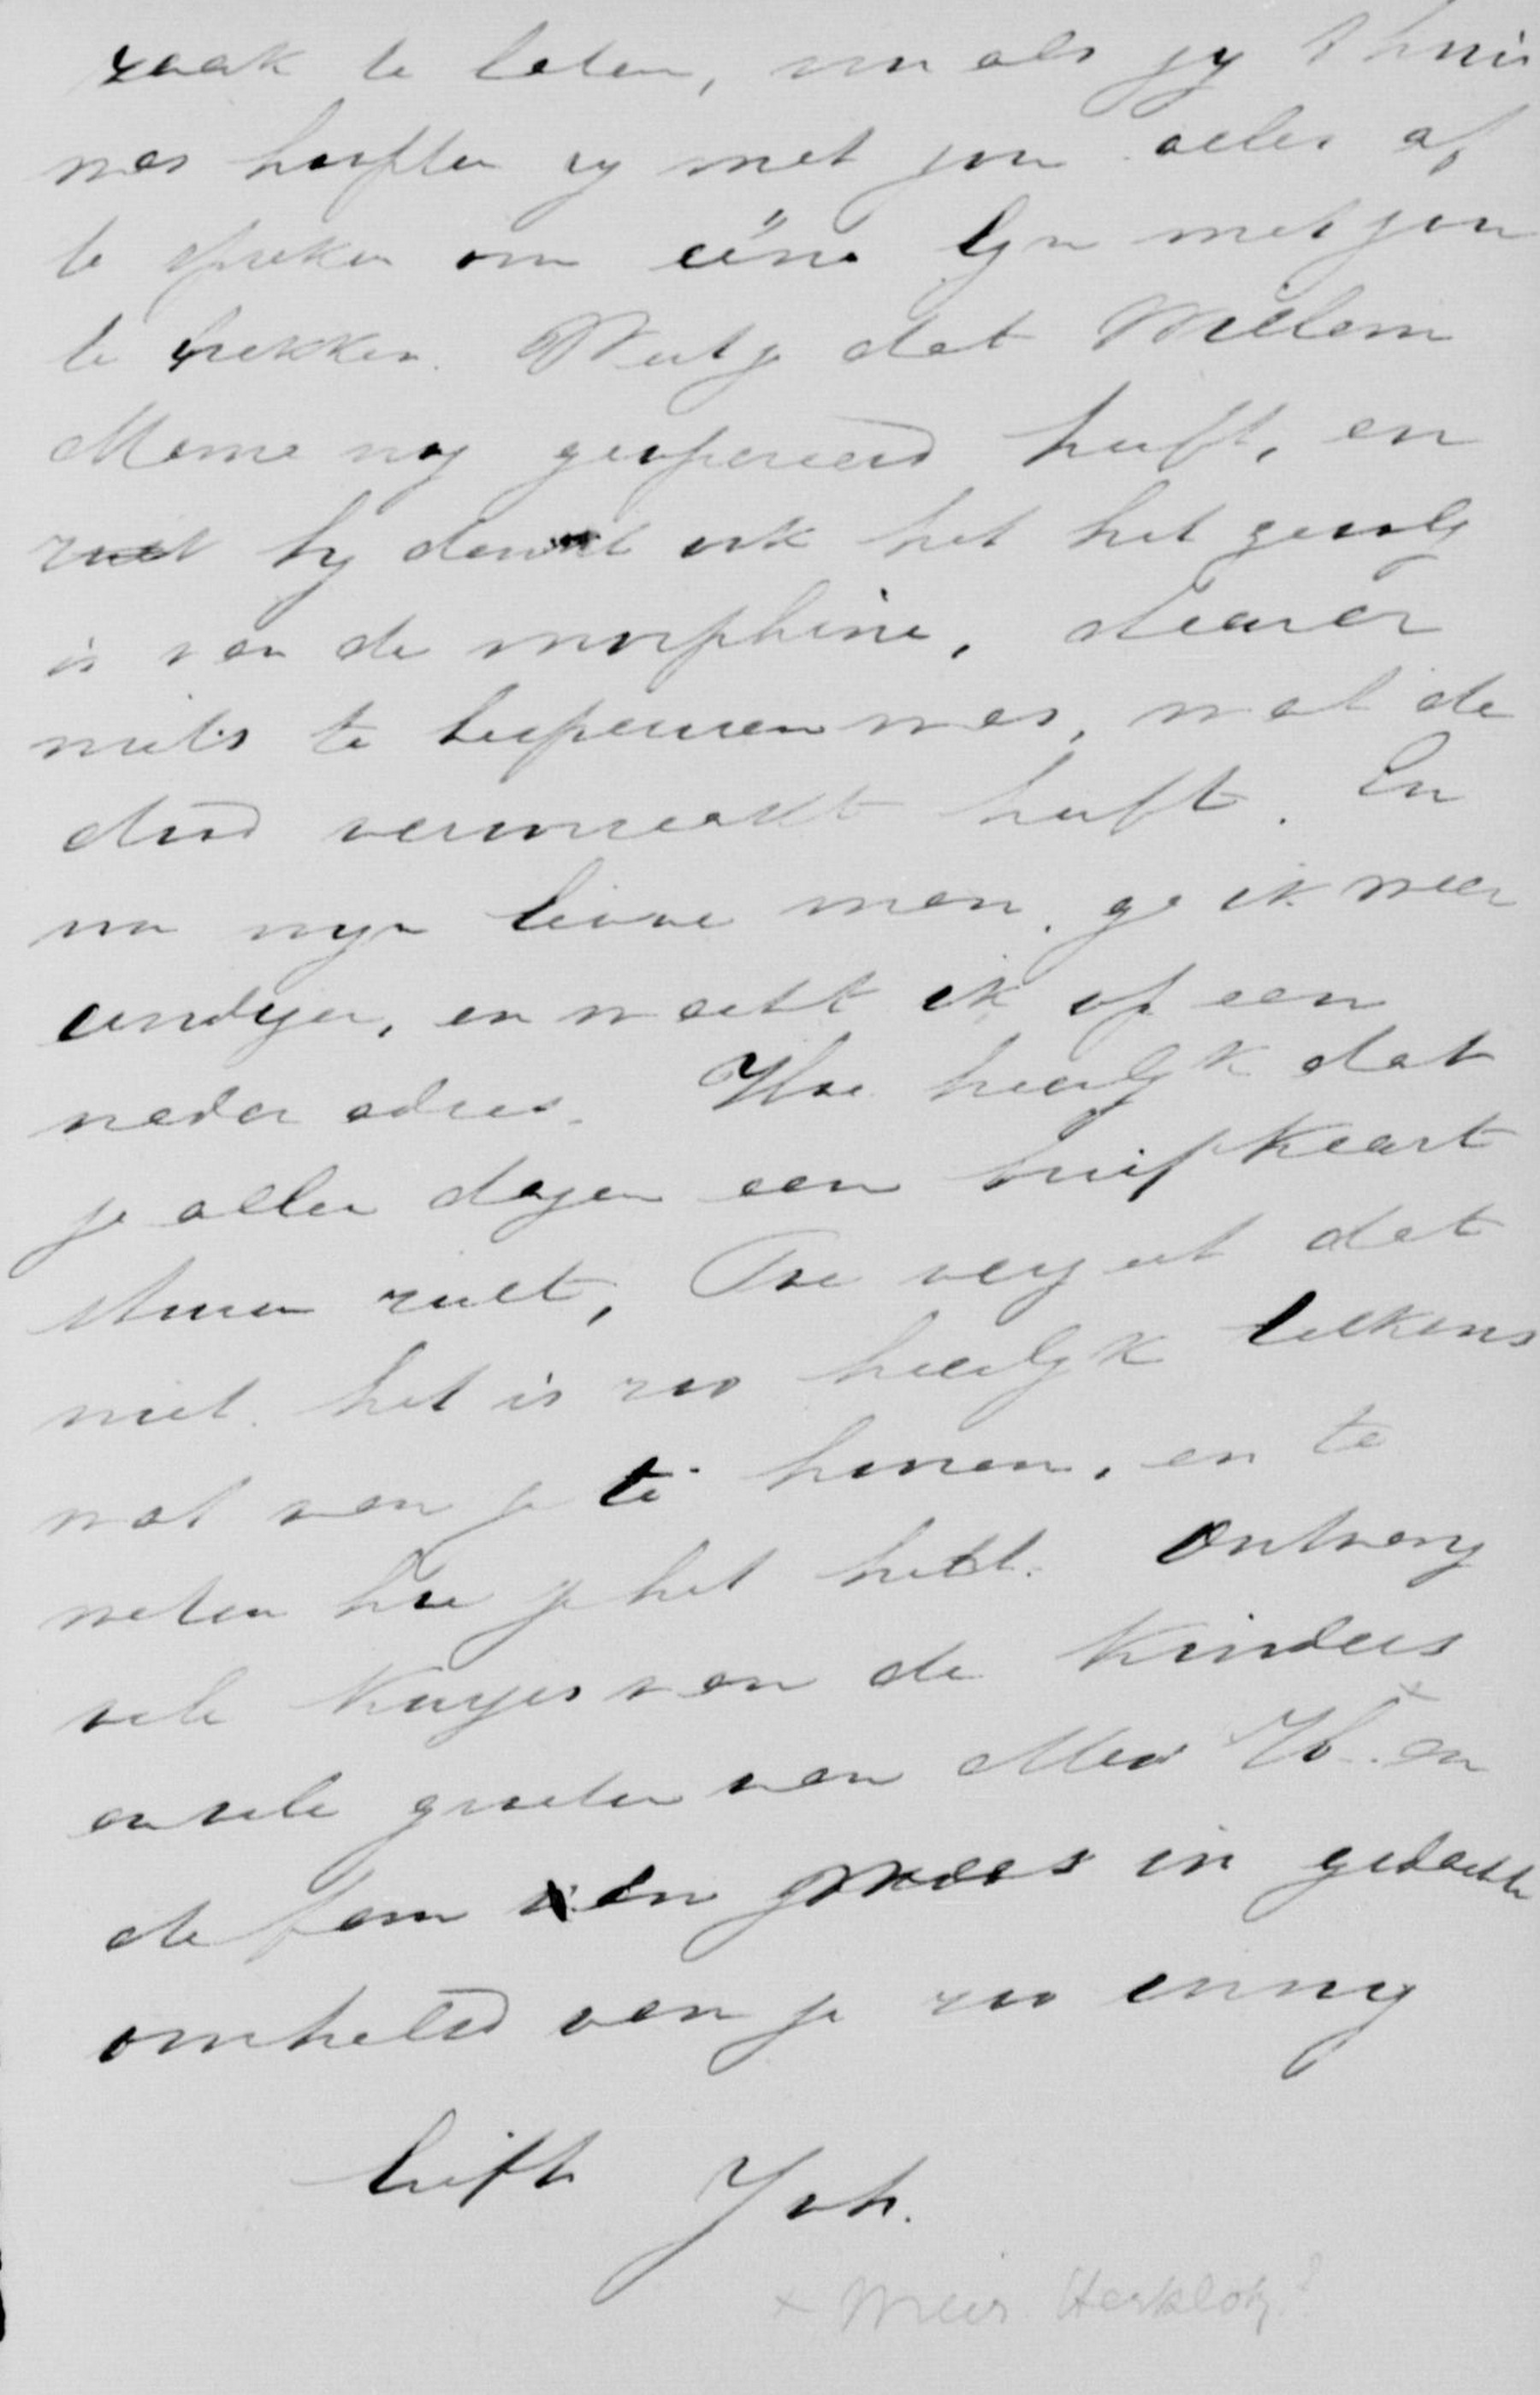 zaak te laten, nu als jy thuis
was hoefden zy met jou alles af
te spreken om ééne lyn met jou
te trekken. Weet je dat Willem
Mama nog geopereerd heeft, en
ziet hy denkt ook het het gevolg
is van de morphine, daar er
niets te bespeuren was, wat de
dood veroorzaakt heeft. En
nu myn lieve man, ga ik weer
eindigen, en wacht ik op een
nader adres. Hoe heerlyk dat
je alle dagen een briefkaart
sturen zult, Toe vergeet dat
niet. het is zoo heerlyk telkens
wat van je te hooren, en te
weten hoe je het hebt. Ontvang
vele kusjes van de kinders
en vele groeten van Mevr H. en
de fam en in gedachte
omhelsd van je zoo innig
liefh Joh.
x Mevr. Herklots?